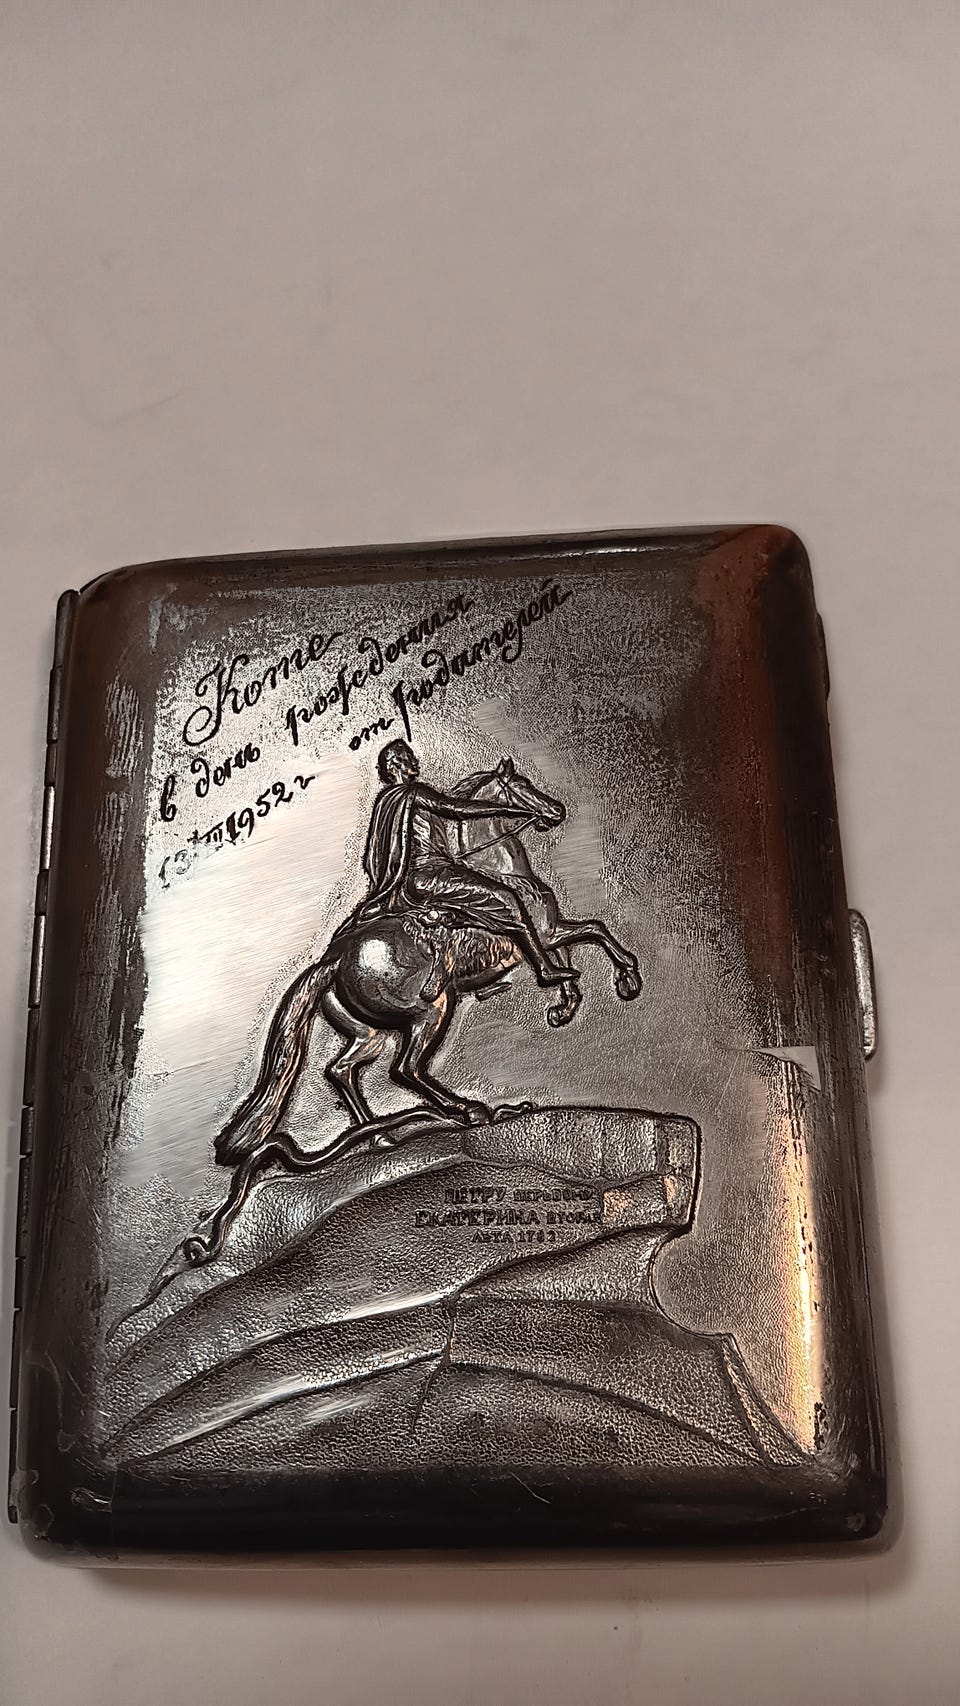 Коте
в день рождения
от родителей
13 III 1952 г
ПЕТРУ ПЕРЬВОМУ
ЕКАТЕРИНА ВТОРАЯ
ЛѢТА 1782